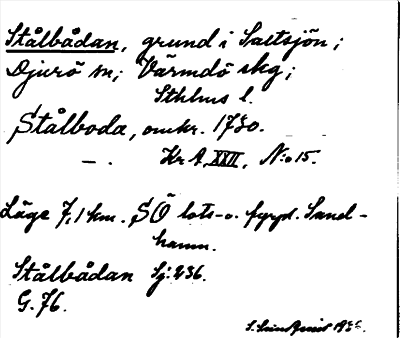 Stålbådan, grund i Saltsjön;
Djurö sn; Värmdö skg;
Sthlms l.
Stålboda, omkr. 1730.
— . Kr A, XXII, N:o 15.
Läge 7,1 km. SÖ lots- o. fyrpl. Sand-
hamn.
Stålbådan Sj: 236.
G. 76.
S. 19